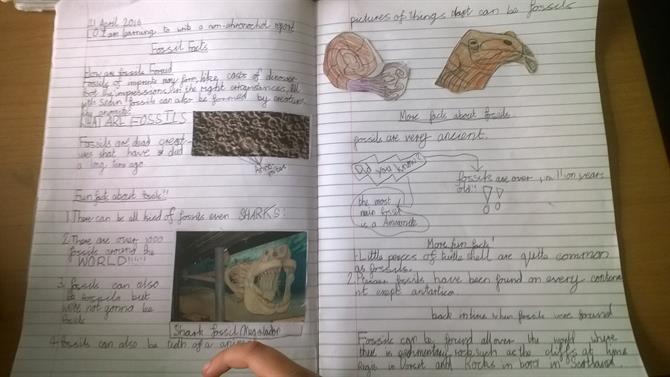 21 April 2016
LO: I am learning to write a non-chronological report
Fossil Facts
How are fossils Formed
Fossils of imprints may form, like, casts of dinosaur
foot the impressions, in the right circumstances, fill
with fossils can also be formed by creatures
WHAT ARE FOSSILS
Fossils are dead creat-
ures that have died
a long time ago
Fun fact about fossils!!
1. There can be all kind of fossils even SHARKS!
2. There are over 1000
fossils around the
WORLD!!!!!
3. fossils can also
be fossils but
were not gonna be
fossils
Shark fossil/Megalodon
4. fossils can also be teeth of a
pictures of things that can be fossils
More facts about fossils
fossils are very ancient.
Did you know?
fossils are over 1 million years
old!!
the most
main fossil
is a Ammonite
More fun facts!
1. Little peaces of turtle shell are quite common
as fossils.
2. fossils have been found on every contene
nt exept antartica.
back in time when fossils were found
Fossils can be found all over the world where
there is sedimentary rock such as the cliffs at Lime
Regis in Dorset and Rocks in bord in Scotland.